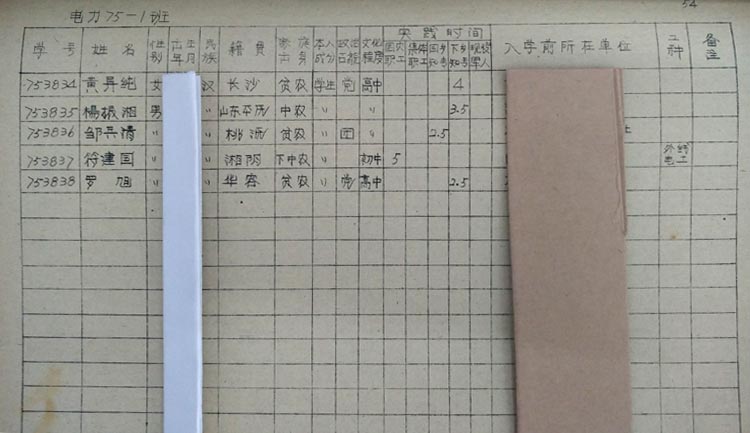 54
电力75-1班
学号 姓名 性别 出生年月 民族 籍贯 家庭出身 本人成分 政治面貌 文化程度 实践时间 国内职工 集体职工 回乡知青 下乡知青 现役军人 入学前所在单位 工种 备注
753834 黄异纯 女 汉 长沙 贫农 学生 党 高中 4
753835 楊振湘 男 〃 山东平历 中农 〃 〃 3.5
753836 邹兵清 〃 〃 桃源 贫农 〃 团 〃 2.5
753837 符建国 〃 〃 湘阴 下中农 〃 初中 5 外线电工
753838 罗旭 〃 〃 华容 贫农 〃 党 高中 2.5